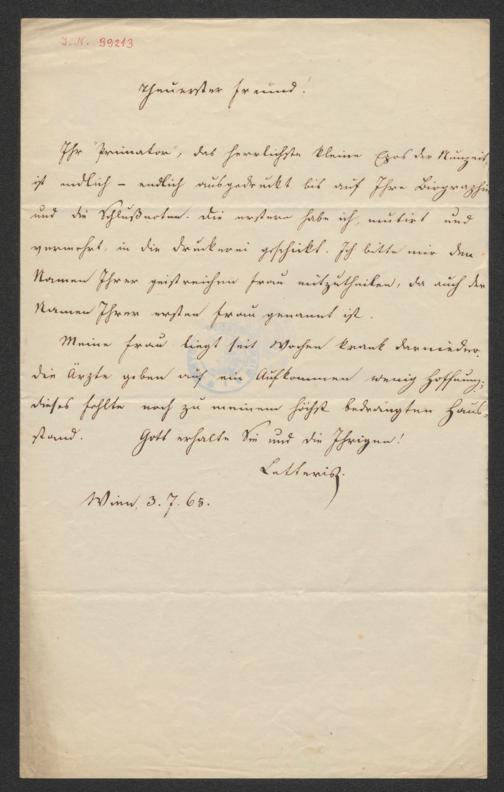 I. N. 99213
Theuerster Freund!
Ihr "Primator", das herrlichste kleine Epos der Neuzeit,
ist endlich – endlich ausgedruckt bis auf Ihre Biographie
und die Schlußnoten. Die erstere habe ich, mutirt und
vermehrt, in die Druckerei geschickt. Ich bitte mir den
Namen Ihrer geistreichen Frau mitzutheilen, da auch der
Namen Ihrer ersten Frau genannt ist.
Meine Frau liegt seit Wochen krank darnieder,
die Ärzte geben auf ein Aufkommen wenig Hoffnung;
dieses fehlte noch zu meinem höchst bedrängten Haus-
stand. Gott erhalte Sie und die Ihrigen!
Letteris.
Wien, 3. 7. 65.